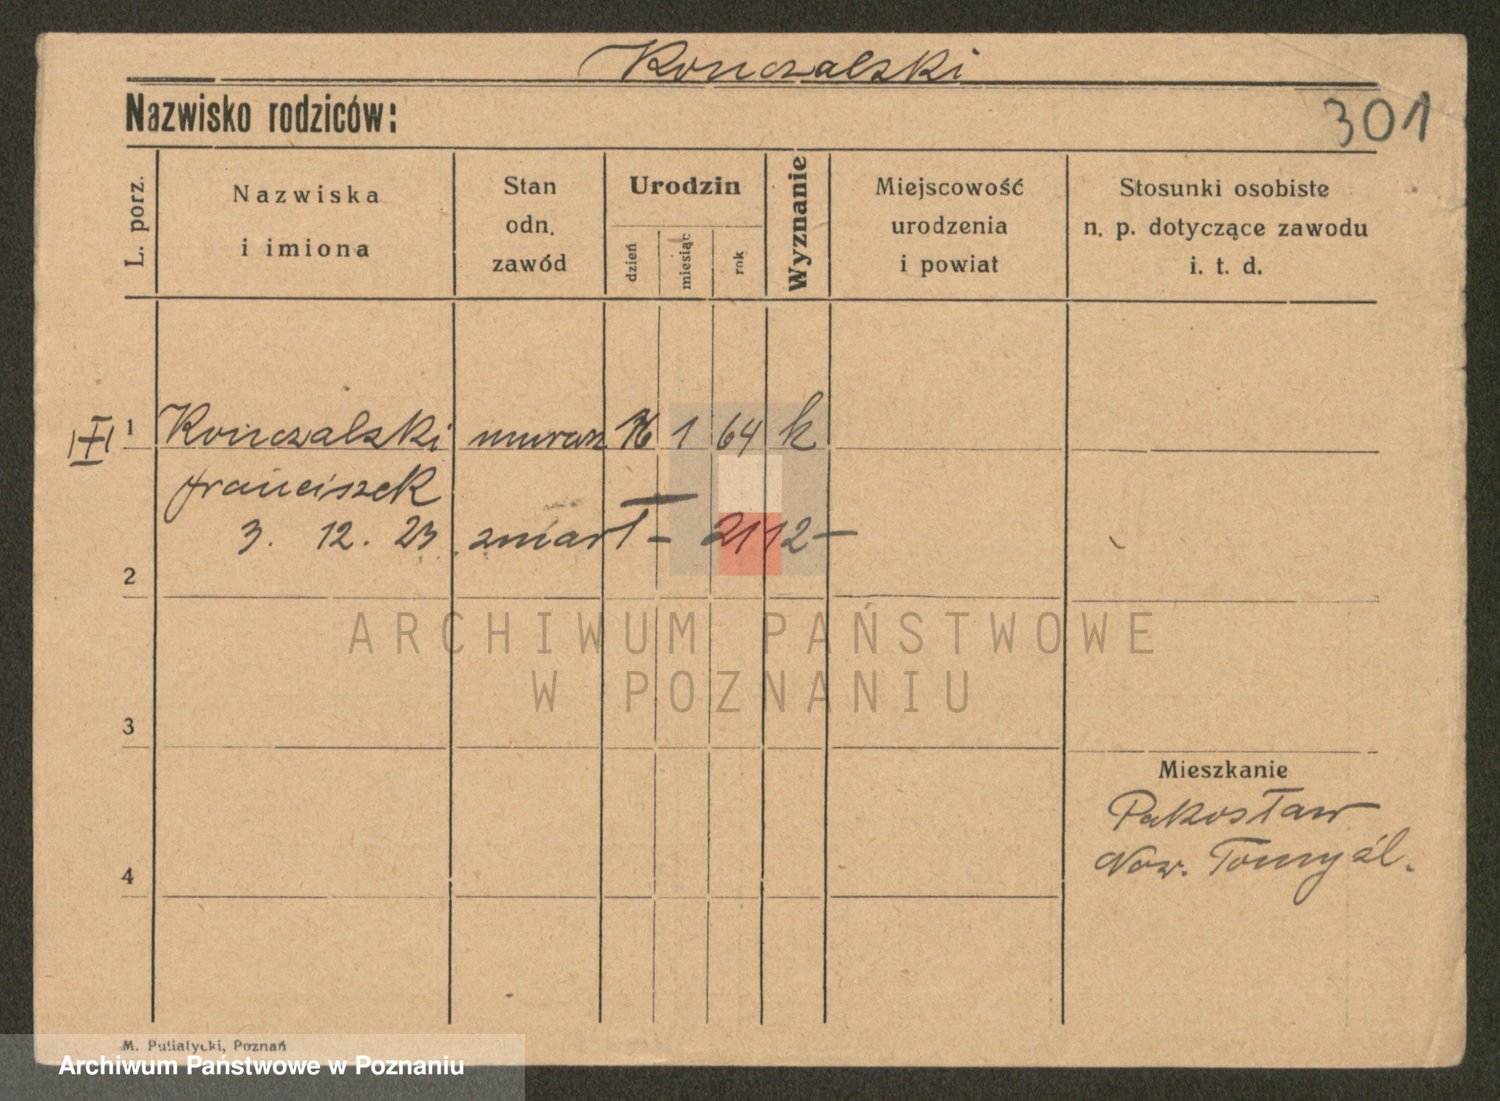 Konczalski
Nazwisko rodziców:
301
L. porz.
Nazwiska
i imiona
Stan
odn.
zawód
Urodzin
dzień
miesiąc
rok
Wyznanie
Miejscowość
urodzenia
i powiat
Stosunki osobiste
n. p. dotyczące zawodu
i. t. d.
1 Konczalski murarz 1 64 k
franciszek
3. 12. 23. zmarł — 21 12 —
2
ARCHIWUM PAŃSTWOWE
W POZNANIU
3
Mieszkanie
Pakosław
Now. Tomyśl.
4
M. Putiatycki, Poznań
Archiwum Państwowe w Poznaniu